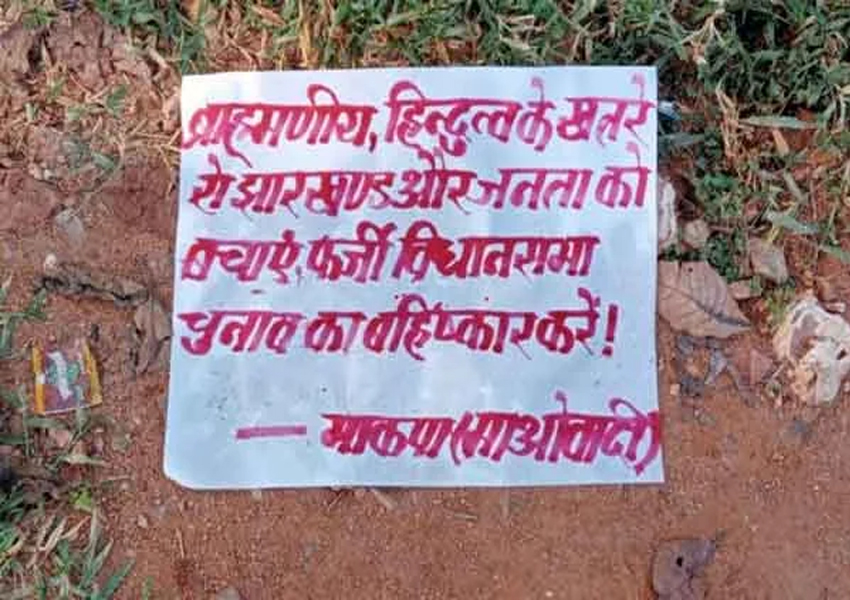 ब्राह्मणीय, हिन्दुत्व के खतरे
से झारखण्ड और जनता को
बचाएं, फर्जी विधानसभा
चुनाव का बहिष्कार करें!
— भाकपा (माओवादी)